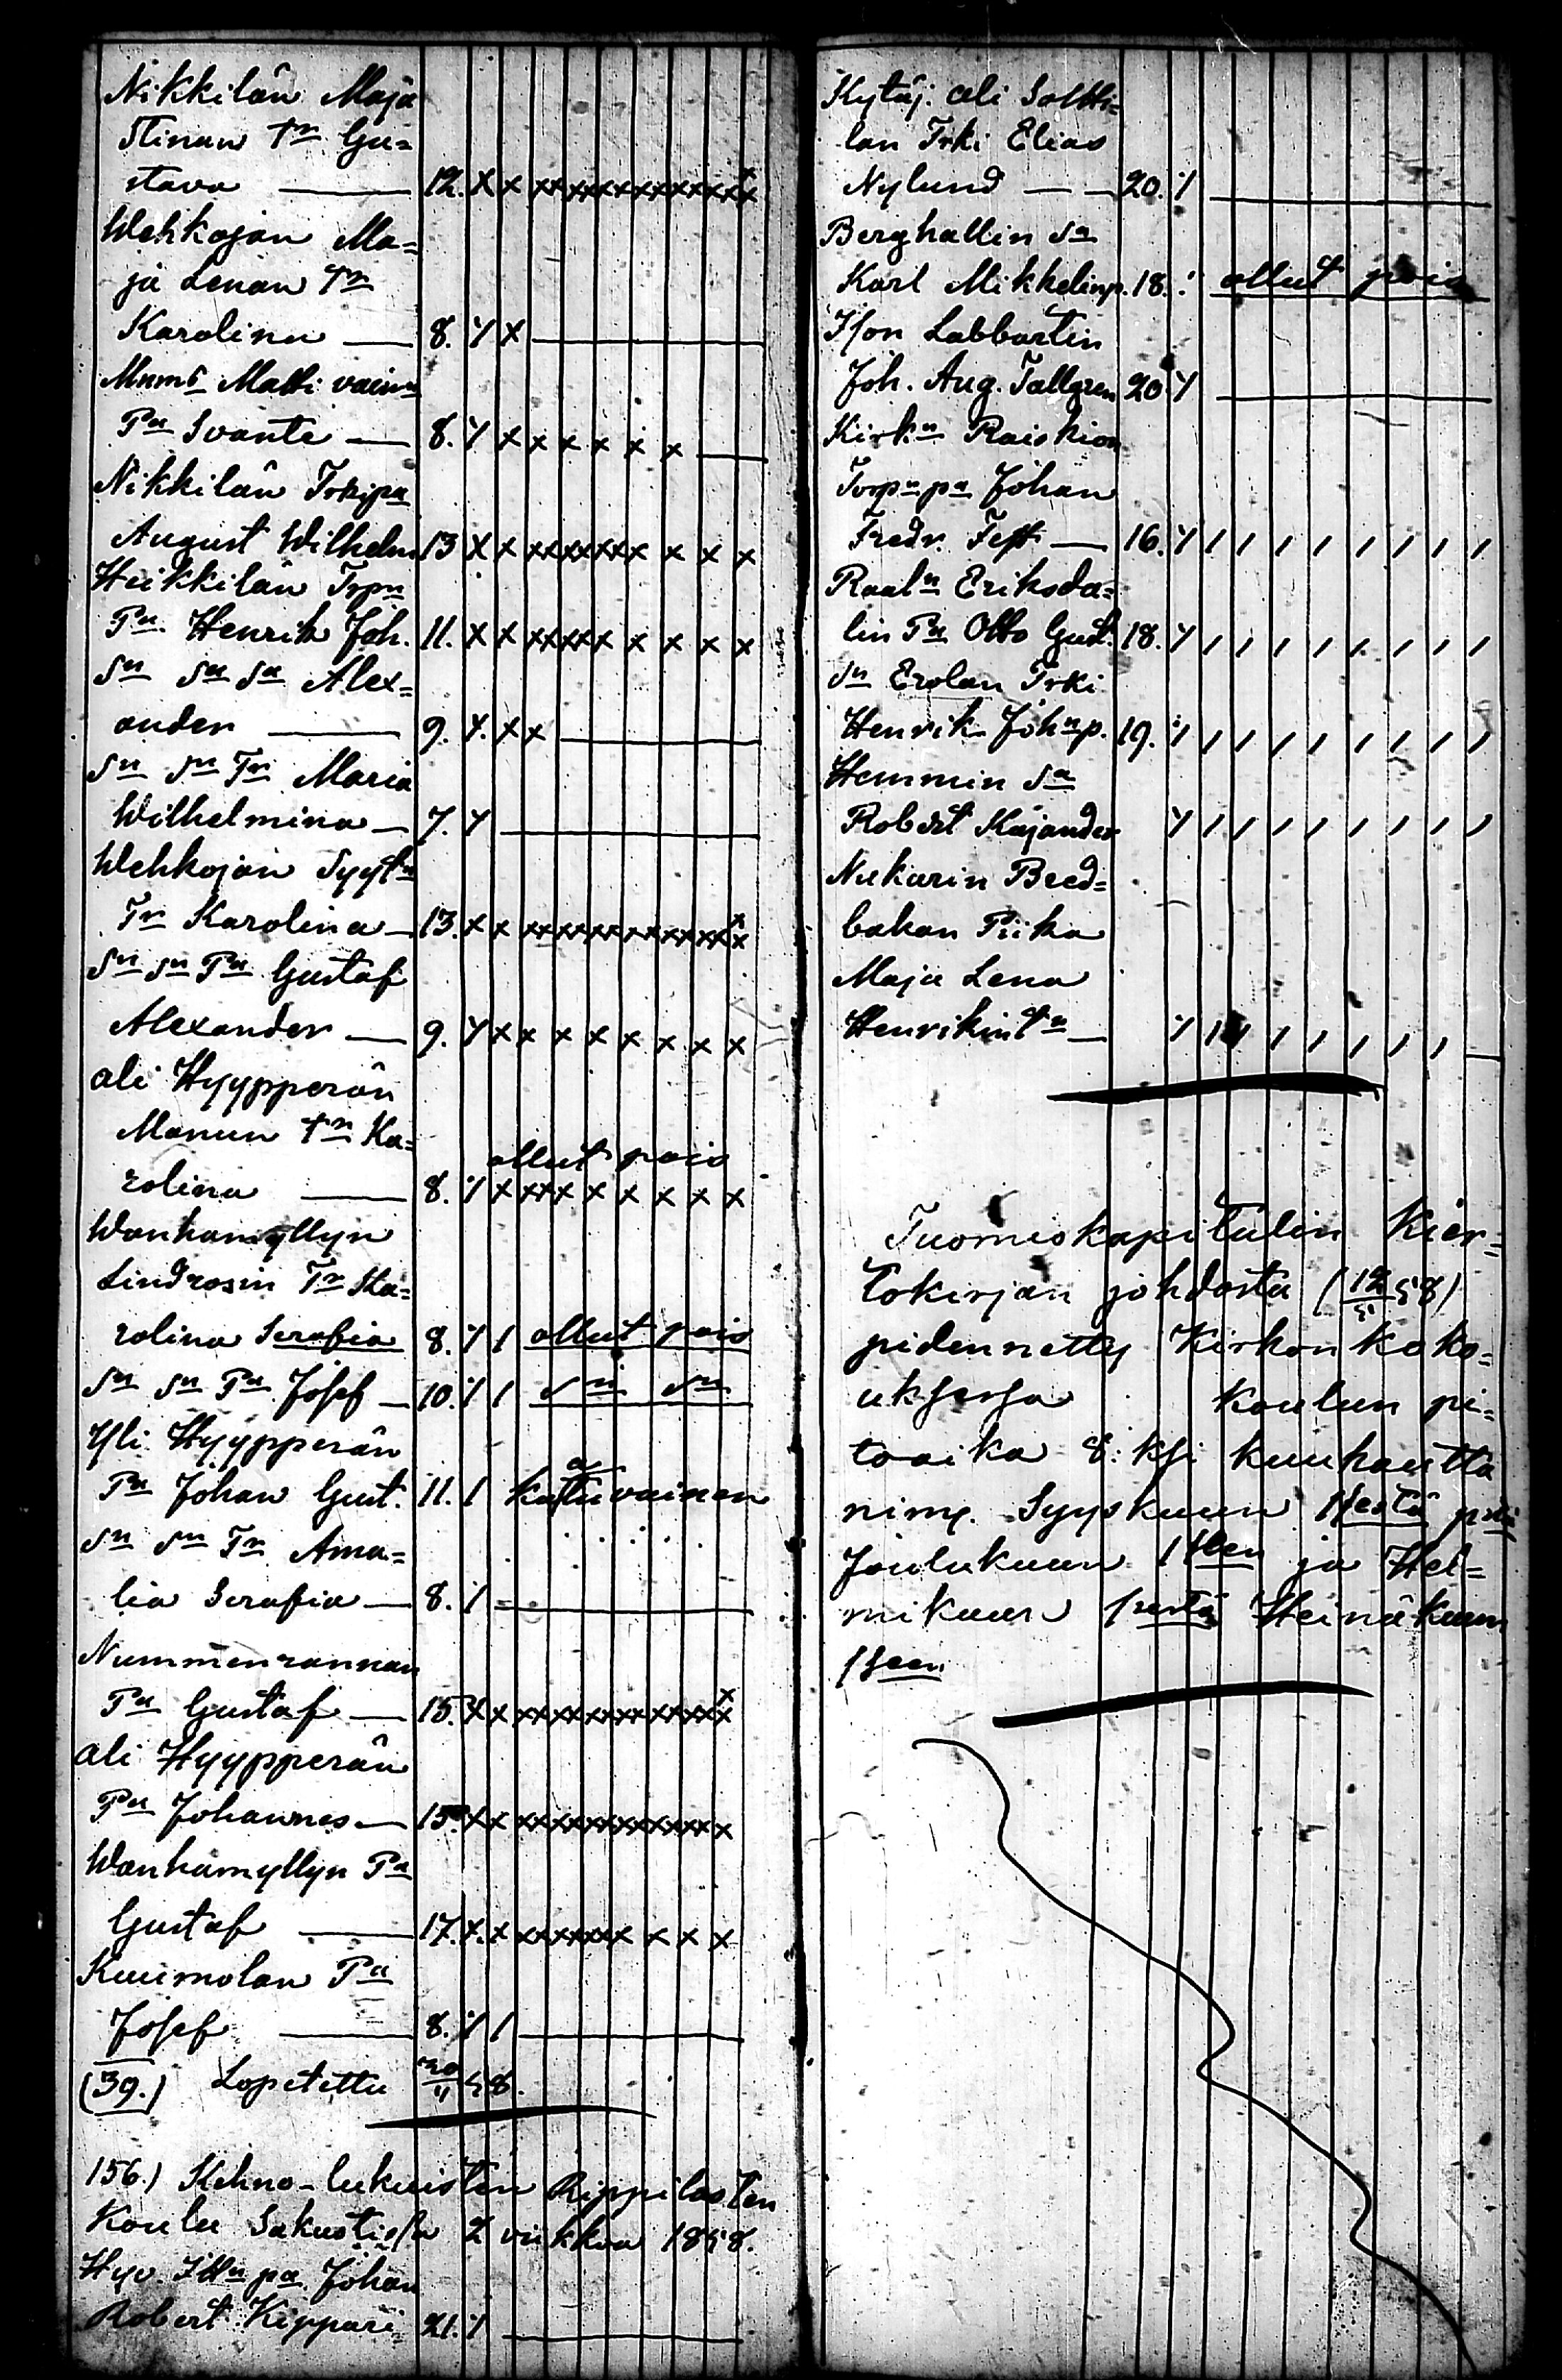 Nikkilän Maja
Stinan Tr Gu=
stava — 12. x x xxxxxxxxxxxxx
Wehkojan Ma=
ja Lenan Tr
Karolina — 8. x
Matti
Pa Svante — 8. x x x x x x
Nikkilän
August Wilhelm 13 x x xxxxxxx x x x
Heikkilän
Pa Henrik Joh. 11. x x xxxxx x x x x
Sn Sn Sa Alex=
ander — 9. x x
Sn Sn Tr Maria
Wilhelmina — 7.
Wehkojan
Tr Karolina — 13. x x xxxxxxxxxxxxx
Sn Sn Pa Gustaf
Alexander — 9. x x x x x x x x
ali Hyypperän
Manun Tr Ka=
ollut pois
rolina — 8. x xxx x x x x x
Wanhamyllyn
Lindrosin Tr Ka=
rolina Serafia 8. / ollut pois
Sn Sn Pa Josef — 10. / Sn Sn
Yli Hyypperän
Pa Johan Gust. 11. /
Sn Sn Tr Ama=
lia Serafia — 8.
Nummenrannan
Pa Gustaf — 15. x x xxxxxxxxxxxxx
ali Hyypperän
Pa Johannes — 15. x x xxxxxxxxxxxx
Wanhamyllyn Pa
Gustaf — 17. x x xxxxxxx x x x
Kuumolan Pa
Josef — 8. /
(39.) Lopetettu 58.
156.) Kehno-lukuisten Rippilasten
Koulu Sakastissa 2 viikkoa 1858.
Hyv. pa Johan
Robert Kippari 21.
Kytäj. ali
lan Trki Elias
Nylund — 20.
Berghallin Sa
Karl Mikkelinp. 18. ollut pois
Ison Labbartin
Joh. Aug. Tallgren 20
Kirkn
Torpn pa Johan
Fredr. — 16. / / / / / / / /
Eriksda=
lin Pa Otto Gust. 18. / / / / / / / /
Sn Erolan Trki
Henrik Johnp. 19. / / / / / / / /
Hemmin Sa
Robert Kajander / / / / / / / /
Nukarin Bred=
bakan Piika
Maja Lena
Henrikint — / / / / / / /
Tuomiokapitulin Kier=
tokirjan johdosta (58)
pidennetty Kirkon koko=
uksessa Koulun pi=
toaika 8:ksi kuukautta
nimx. Syyskuun 1sestä
Joulukuun 1seen ja Hel=
mikuun 1sestä Heinäkuun
1seen.